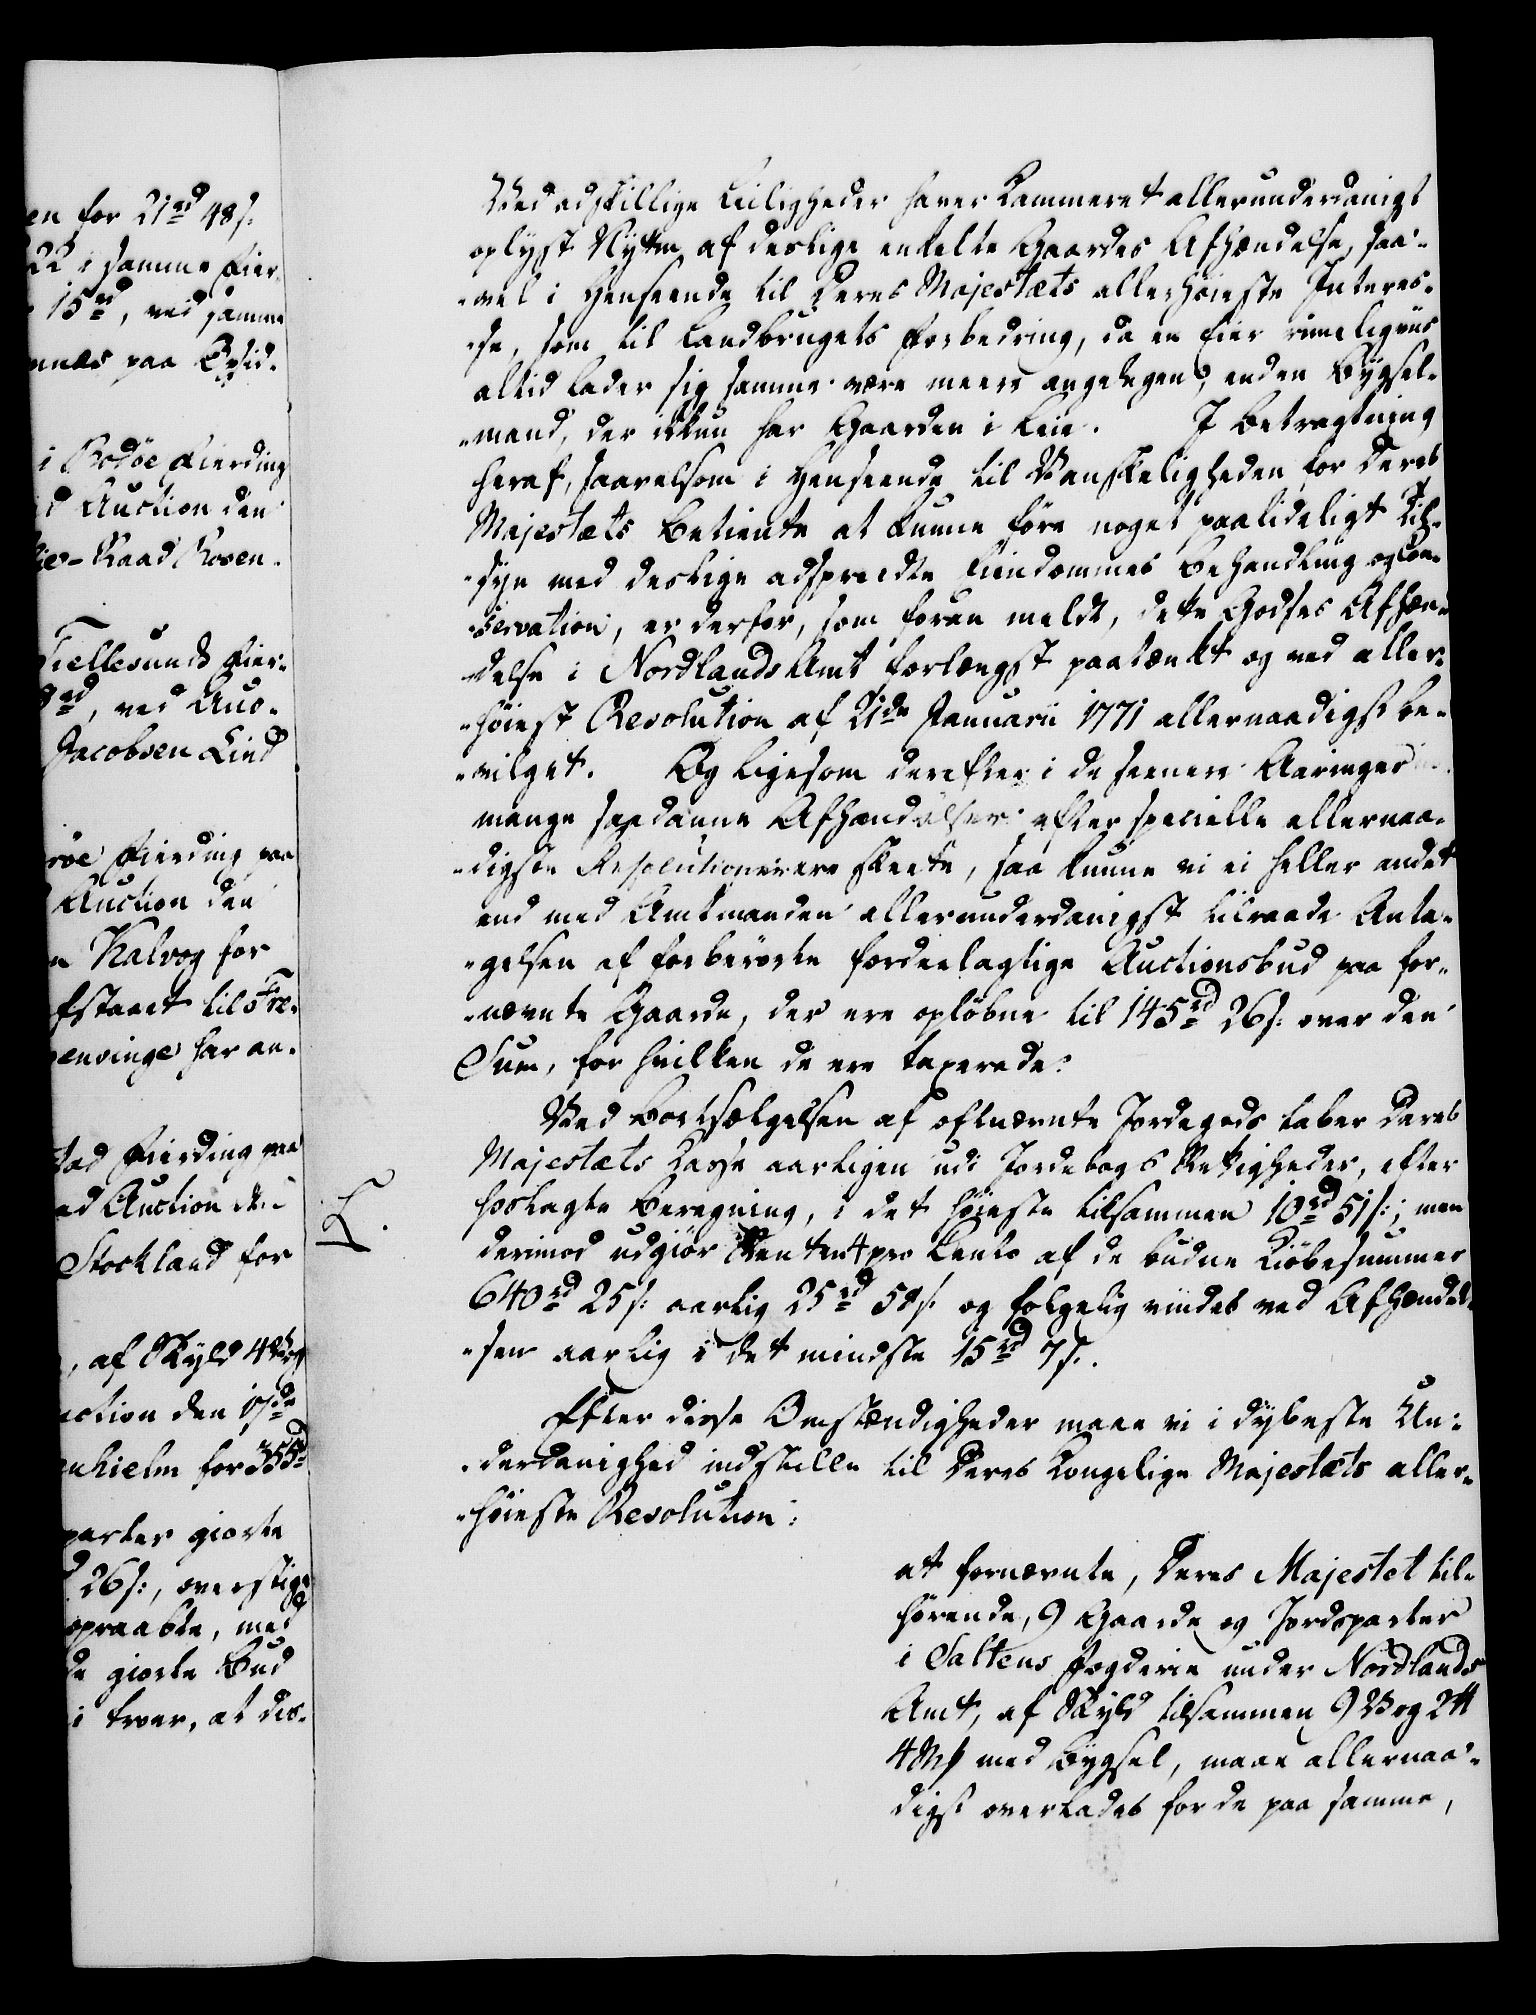 en for 21rd 48s:
22 i samme Fier-
15rd, ved samme
nnes paa Opsid-
i Bodöe Fierding
d Auction den
tie-Raad Rosen-
Fiellesunds Fier-
rd, ved Auc-
Jacobsen Lind
röe Fierding paa
Auction den
n Kalvog for
fstaaet til Fre-
envinge har an-
stad Fierding paa
ed Auction den
Stockland for
, af Skyld 4 Vog
uction den 17de
enhielm for 355rd
parter giorte
26s:, overstige
opraabte, med
de giorte Bud
i troer, at des-
Ved adskillige Leiligheder haver Kammeret allerunderdanigst
oplyst Nytten af deslige enkelte Gaardes Afhændelse, saa-
-vel i Henseende til Deres Majestæts allerhöieste Interes-
-se, som til Landbrugets Forbedring, da en Eier rimeligviis
altid lader sig samme være meere angelegen, enden Bÿgsel-
-mand, der ikkun har Gaarden i Leie. I Betragtning
heraf, saavelsom i Henseende til Vanskeligheden for Deres
Majestæts Betiente at kunne före noget paalideligt Til-
-syn med deslige adspredte Eiendommes Behandling og Con-
-servation, er derfor, som foran meldt, dette Godses Afhæn-
-delse i Nordlands Amt forlængst paatænkt og ved aller-
-höiest Resolution af 21de Januarii 1771 allernaadigst be-
-vilget. Og ligesom derefter i de seenere Aaringer
mange saadanne Afhændelser efter specielle allernaa-
-digste Resolutioner ere skeete, saa kunne vi ei heller andet
end med Amtmanden allerunderdanigst tilraade Anta-
-gelsen af forberörte fordeelagtige Auctionsbud paa for-
-nævnte Gaarde, der ere oplöbne til 145rd 26s: over den
Sum, for hvilken de ere taxerede.
Ved Bortsælgelsen af oftnævnte Jordegods taber Deres
Majestæts Casse aarligen udi Jordebogs Rettigheder, efter
L.
hoslagte Beregning, i det höieste tilsammen 10rd 51s:; men
derimod udgiör Renten 4 pro Cento af de budne Kiöbesummer
640rd 25s: aarlig 25rd 58s: og fölgelig vindes ved Afhændel-
-sen aarlig i det mindste 15rd 7s.
Efter disse Omstændigheder maae vi i dÿbeste Un-
-derdanighed indstille til Deres Kongelige Majestæts aller-
-höieste Resolution:
at fornævnte, Deres Majestet til-
hörende, 9 Gaarde og Jordeparter
i Saltens Fogderie under Nordlands
Amt, af Skÿld tilsammen 9 Vog 2 ℔
4 Mk med Bÿgsel, maae allernaa-
digst overlades for de paa samme,